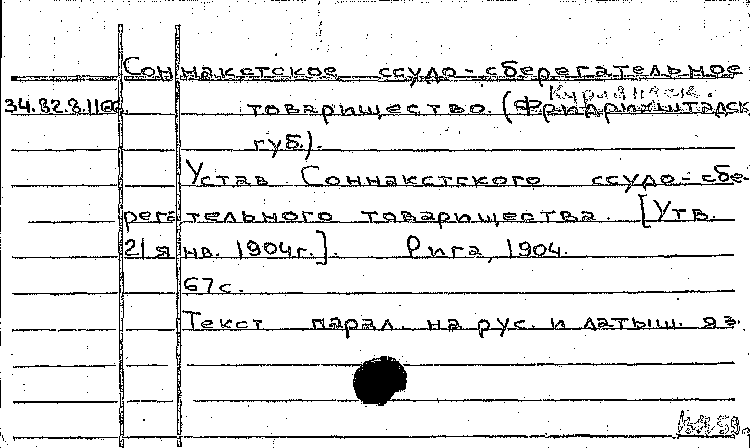 Соннакстское ссудо-сберегательное
Курляндск.
34.82.8.1166. товарищество. (Фридрихштадск
губ.).
Устав Соннакстского ссудо-сбе-
регательного товарищества. [Утв.
21 янв. 1904г.]. Рига, 1904.
67с.
Текст парал. на рус. и латыш. яз.